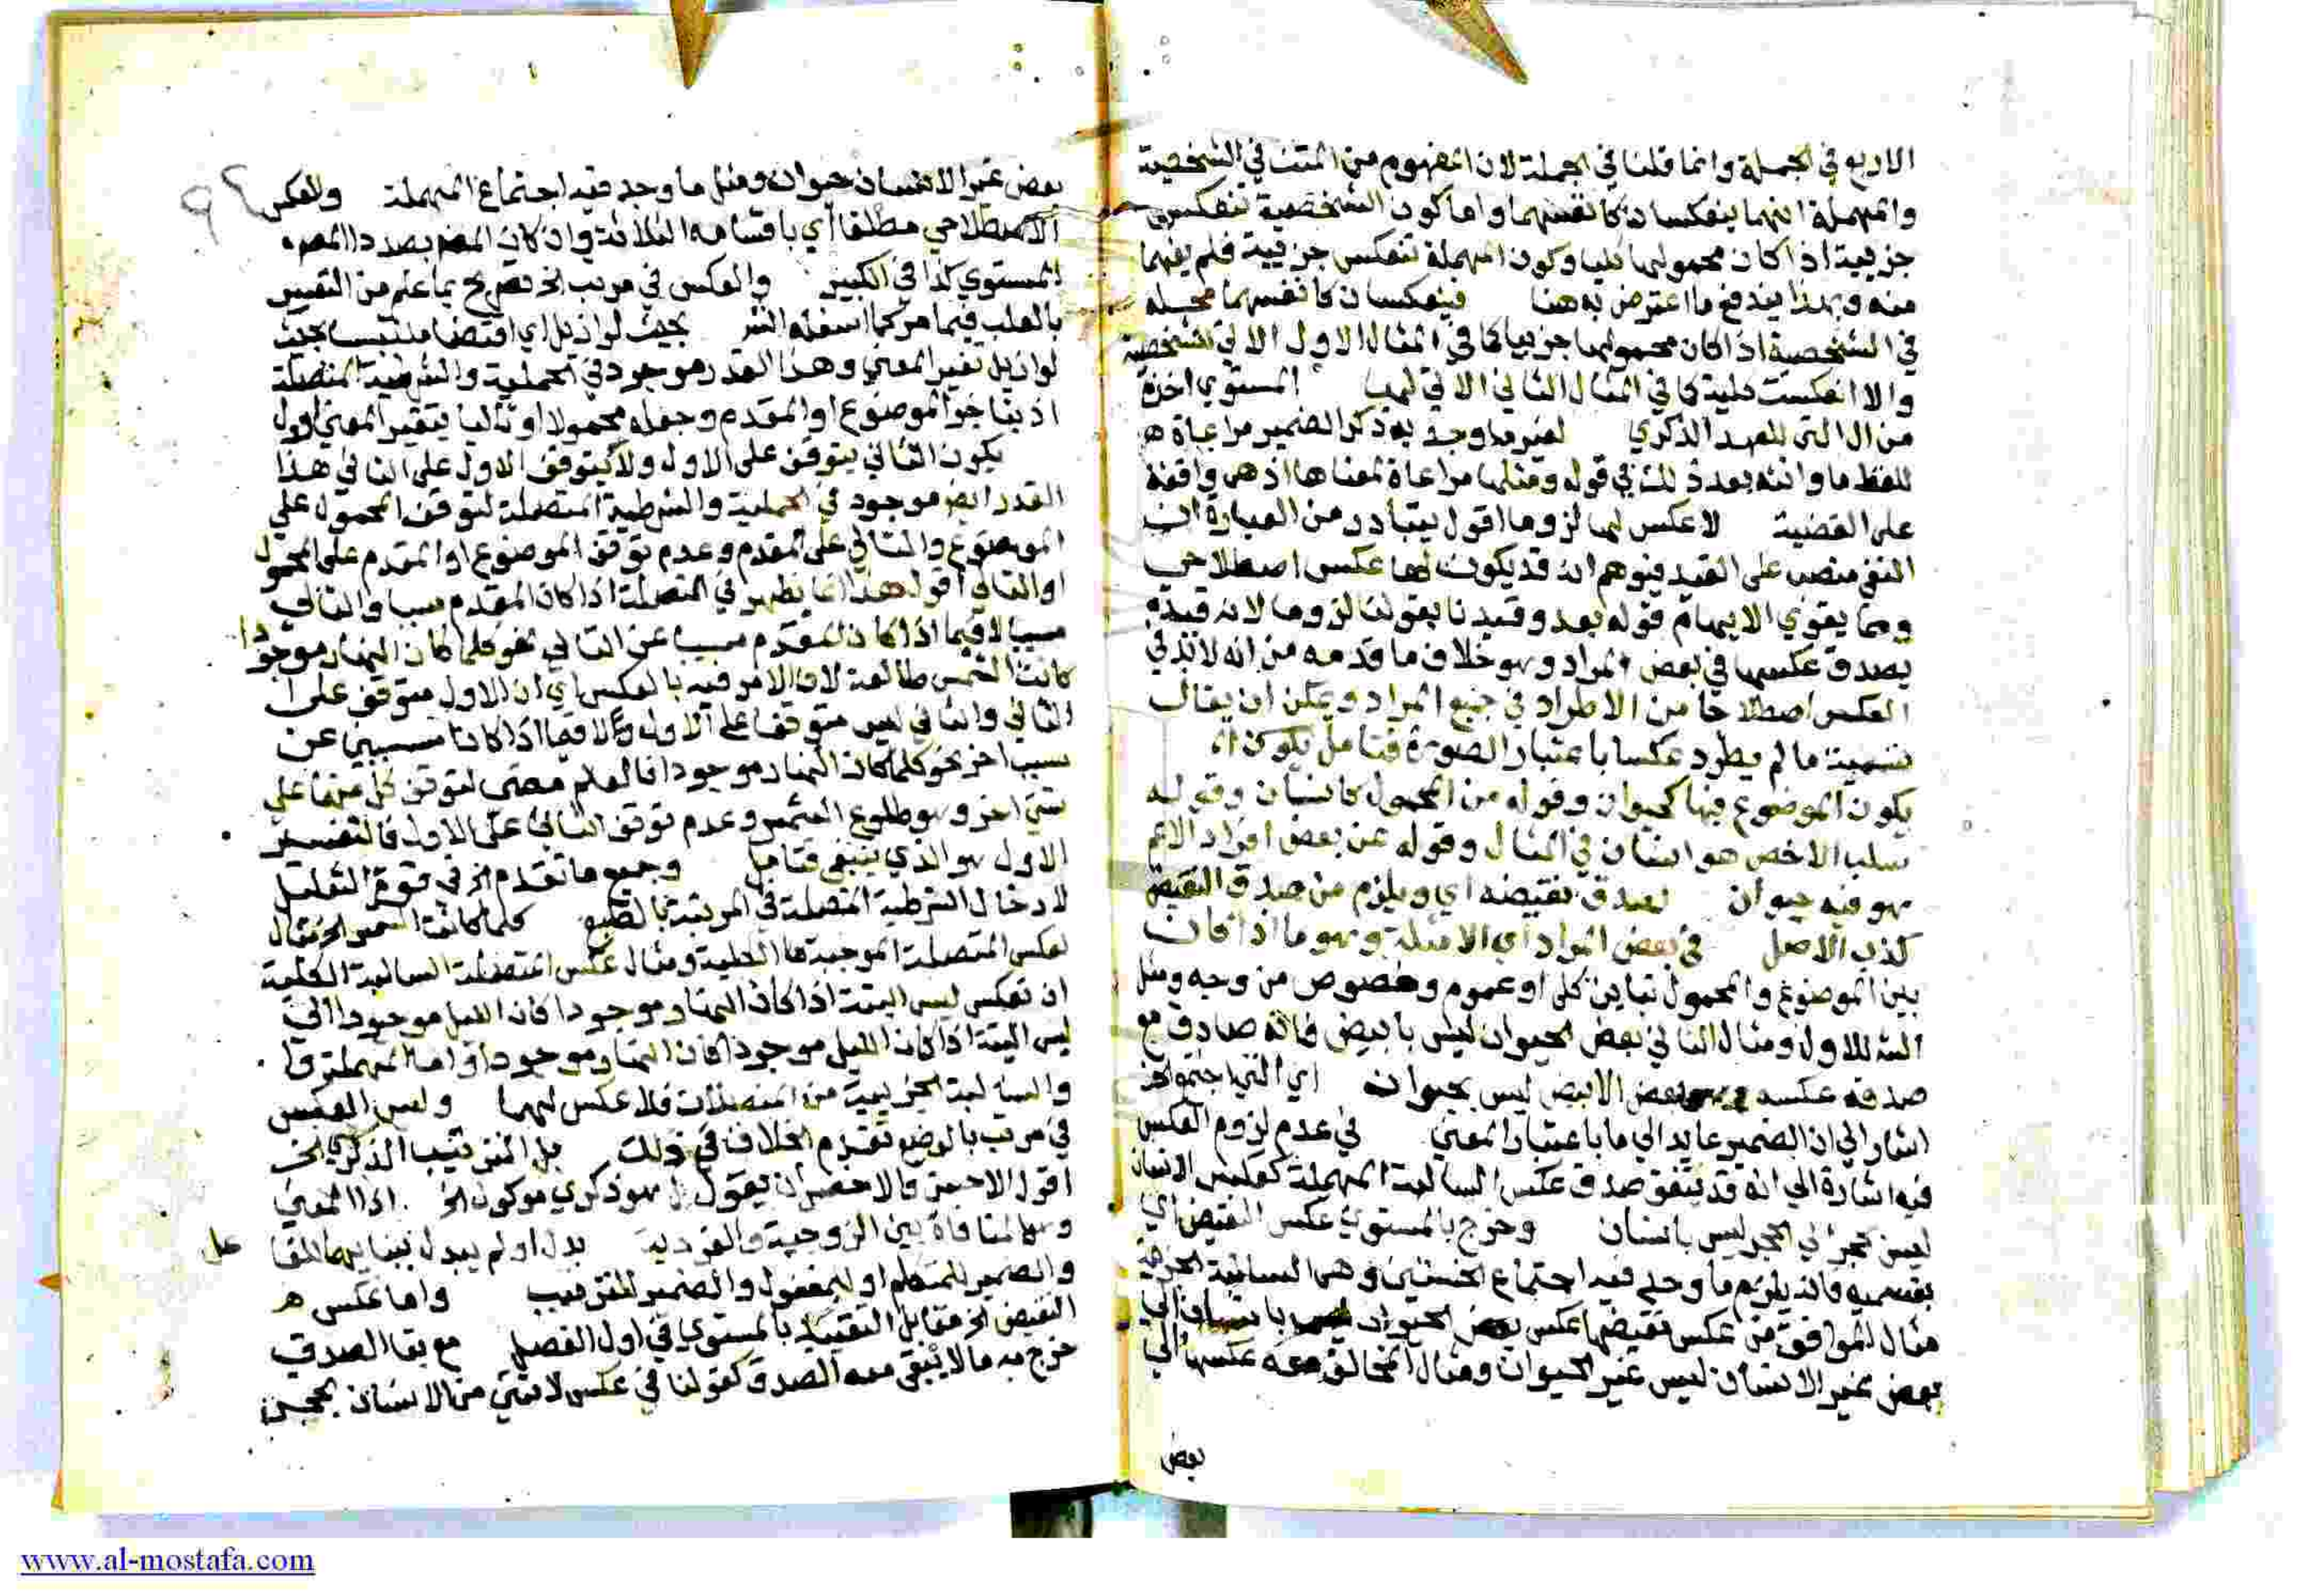 الاربع في الجملة وانما قلنا في الجملة لان المفهوم من المتن في الشخصية
والمهملة انهما ينعكسان كانفسهما واما كون الشخصية تنعكس
جزيية اذا كان محمولها كليا وكون المهملة تنعكس جزيية فلم يفهما
منه وبهذا يندفع ما اعترض به هنا فينعكسان كانفسهما محله
في الشخصية اذا كان محمولها جزييا كما في المثال الاول الاتي للشخصية
والا انعكست كلية كما في المثال الثاني الاتي لها المستوي اخذه
من ال التي للعهد الذكري لغير ما وجد به ذكر الضمير مراعاة
للفظ ما وانثه بعد ذلك في قوله ومثلها مراعاة لمعناها اذ هي واقعة
على القضية لا عكس لها لزوما اقول يتبادر من العبارة ان
النفي منصب على القيد فيوهم انه قد يكون لها عكس اصطلاحي
ومما يقوي الايهام قوله بعد وقيدنا بقولنا لزوما لانه قد
يصدق عكسها في بعض المواد وهو خلاف ما قدمه من انه لا بد في
العكس اصطلاحا من الاطراد في جميع المواد ويمكن ان يقال
تسمية ما لم يطرد عكسا باعتبار الصورة فتامل
يكون الموضوع فيها كحيوان وقوله من المحمول كانسان وقوله
سلب الاخص هو انسان في المثال وقوله عن بعض افراد الاعم
هو فيه حيوان لصدق نقيضه اي ويلزم من صدق النقيض
كذب الاصل في بعض المواد اي الامثلة وهو ما اذا كان
بين الموضوع والمحمول تباين كلي او عموم وخصوص من وجه ومثل
الش للاول ومثال الثاني بعض الحيوان ليس بابيض فانه صادق مع
صدق عكسه وهو بعض الابيض ليس بحيوان اي التي اجتمع الخ
اشار الى ان الضمير عايد الى ما باعتبار المعنى في عدم لزوم العكس
فيه اشارة الى انه قد يتفق صدق عكس السالبة المهملة كعكس الانسان
ليس بحجر الى الحجر ليس بانسان وخرج بالمستوي عكس النقيض اي
بقسميه فانه يلزم ما وجد فيه اجتماع الخستين وهي السالبة الجزيية
مثال الموافق من عكس نقيضها عكس بعض الحيوان ليس بانسان الى
بعض غير الانسان ليس غير الحيوان ومثال المخالف معه عكسها الى
بعض
بعض غير الانسان حيوان ومثل ما وجد فيه اجتماع المهملة والعكس
الاصطلاحي مطلقا اي باقسامه الثلاثة وان كان المص بصدد
المستوي كذا في الكبير والعكس في مرتب الخ تصريح بما علم من التقييس
بالقلب فيما مر كما اسفله الش بحيث لو ازيل اي اقتضا ملتبسا بحيث
لو ازيل تغير المعنى وهذا القدر موجود في الحملية والشرطية المتصلة
اذ بتاخر الموضوع او المقدم وجعله محمولا او تاليا يتغير المعنى
يكون الثاني يتوقف على الاول ولا يتوقف الاول على الثاني هذا
القدر ايض موجود في الحملية والشرطية المتصلة لتوقف المحمول على
الموضوع والتالي على المقدم وعدم توقف الموضوع او المقدم على المحمول
او التالي اقول هذا انما يظهر في المتصلة اذا كان المقدم سببا والتالي
مسببا لا فيما اذا كان المقدم مسببا عن التالي نحو كلما كان النهار موجودا
كانت الشمس طالعة لان الامر فيه بالعكس اي ان الاول متوقف على
الثاني والثاني ليس متوقفا على الاول ولا فيما اذا كانا مسببين عن
سبب اخر نحو كلما كان النهار موجودا فالعالم مضي لتوقف كل منهما على
شي اخر وهو طلوع الشمس وعدم توقف الثاني على الاول فالتفسير
الاول هو الذي ينبغي فتامل وجميع ما تقدم الخ في قوة التعليل
لادخال الشرطية المتصلة في المرتبة بالطبع كلما كانت الشمس الخ مثال
لعكس المتصلة الموجبة الكلية ومثال عكس المتصلة السالبة الكلية
ان تعكس ليس البتة اذا كان النهار موجودا كان الليل موجودا الى
ليس البتة اذا كان الليل موجودا كان النهار موجودا واما المهملة
والسالبة الجزيية من المتصلات فلا عكس لهما وليس العكس
في مرتب بالوضع تقدم الخلاف في ذلك بل الترتيب الذكري الخ
اقول الاحسن والاخصر ان يقول بل هو ذكري موكول الخ اذ المعنى
وهو المنافاة بين الزوجية والفردية بدل او لم يبدل
والضمير للمتكلم او للمفعول والضمير للترتيب واما عكس
النقيض الخ مقابل التقييد بالمستوي في اول الفصل مع بقا الصدق
خرج به ما لا يبقى معه الصدق كقولنا في عكس لا شي من الانسان بحجر
www.al-mostafa.com